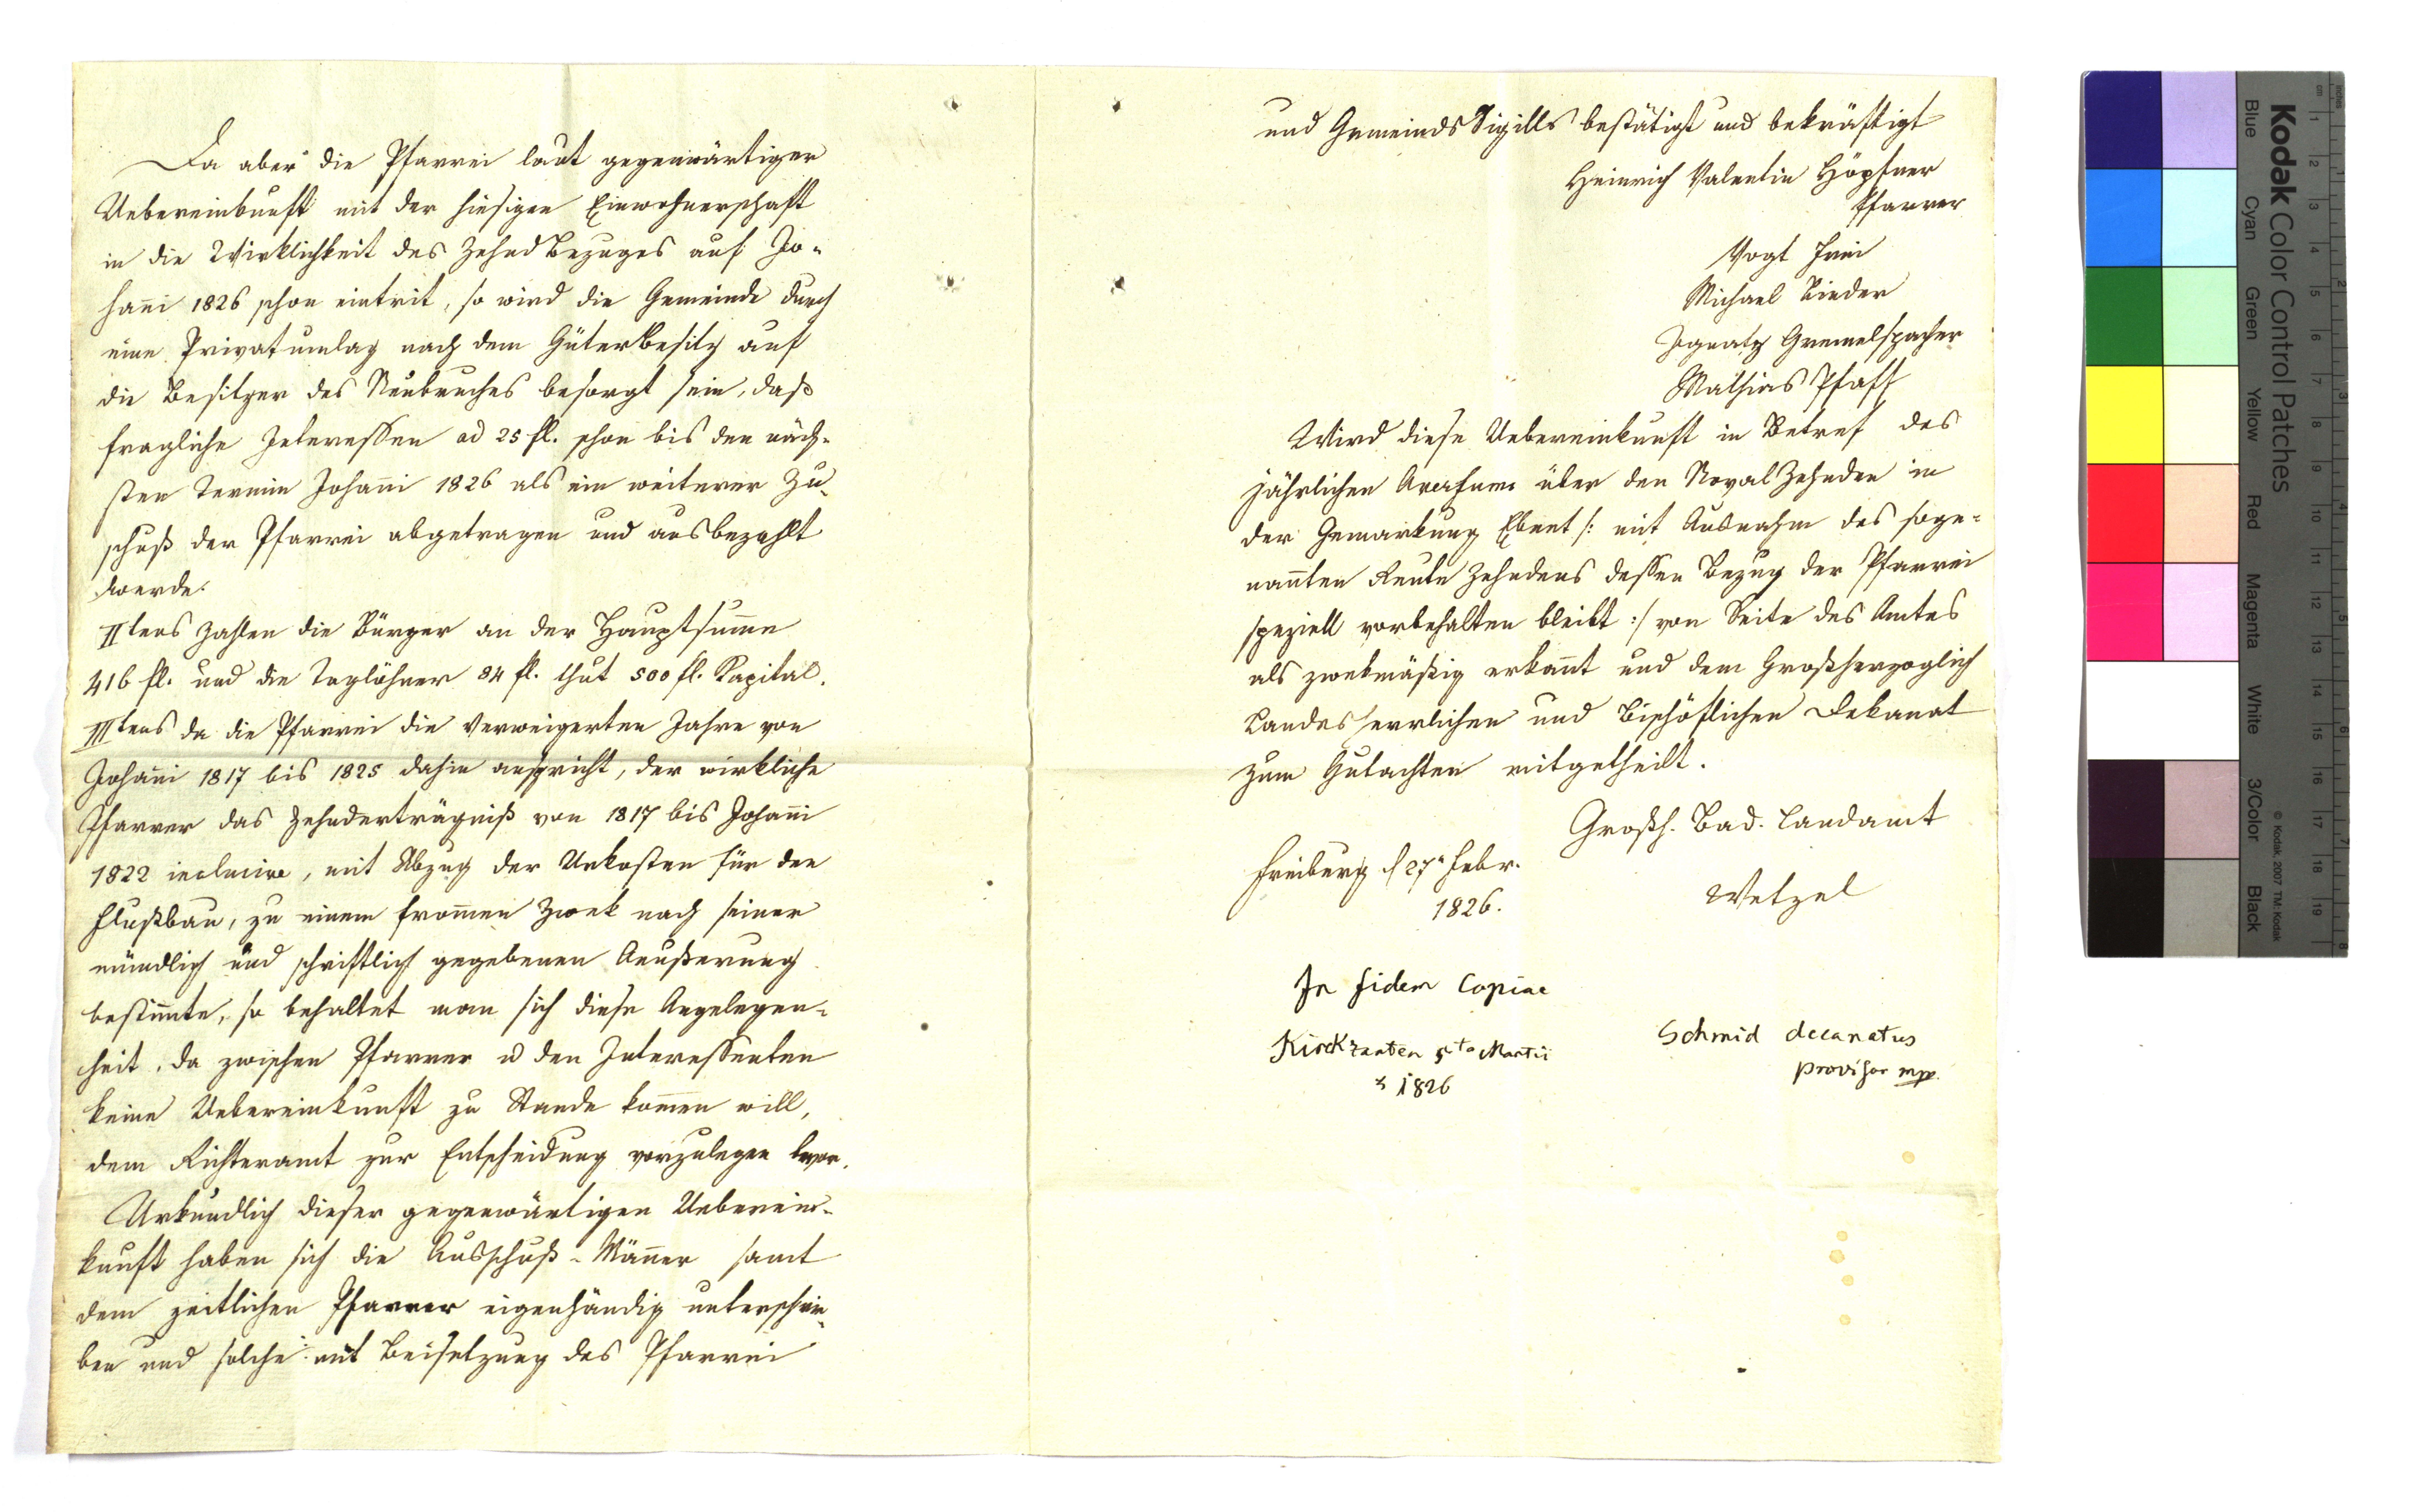 Da aber die Pfarrei laut gegenwärtiger
Uebereinkunft mit der hiesigen Einwohnerschaft
in die Wirklichkeit des Zehnd Bezuges auf Jo-
hañi 1826 schon eintrit, so wird die Gemeinde durch
eine Privatumlag nach dem Güterbesitz auf
die Besitzer des Neubruches besorgt sein, daß
fragliche Interessen ad 25 fl. schon bis den näch-
sten Termin Johañi 1826 als ein weiterer Zu-
schuß der Pfarrei abgetragen und ausbezahlt
werde.
IItens Zahlen die Bürger an der Hauptsum̃e
416 fl. und die Taglöhner 84 fl. thut 500 fl. Kapital.
IIItens da die Pfarrei die verweigerten Jahre von
Johañi 1817 bis 1825 dahin anspricht, der wirkliche
Pfarrer das Zehnderträgniß von 1817 bis Johañi
1822 inclusive, mit Abzug der Unkosten für den
Flußbau, zu einem from̃en Zwek nach seiner
mündlich und schriftlich gegebenen Aeußerung
bestim̃te, so behaltet man sich diese Angelegen-
heit, da zwischen Pfarrer u den Interessenten
keine Uebereinkunft zu Stande kom̃en will,
dem Richteramt zur Entscheidung vorzulegen bevor.
Urkundlich dieser gegenwärtigen Ueberein-
kunft haben sich die Ausschuß-Mäñer samt
dem zeitlichen Pfarrer eigenhändig unterschrie-
ben und solche mit Beisetzung des Pfarrei
und Gemeinds Sigills bestätigt und bekräftigt
Heinrich Valentin Höpfner
Pfarrer
Vogt Frei
Michael Rieder
Ignatz Gremelspacher
Mathias Pfaff
Wird diese Uebereinkunft in Betref des
jährlichen Aversums über den Noval Zehnden in
der Gemarkung Ebnet /: mit Ausnahm des soge-
nañten Reute Zehndens dessen Bezug der Pfarrei
speziell vorbehalten bleibt :/ von Seite des Amtes
als zwekmäßig erkañt und dem Großherzoglich
Landesherrlichen und Bischöflichen Dekanat
zum Gutachten mitgetheilt.
Großh. Bad. Landamt
Freiburg d 27n Febr.
1826.
Wetzel
In fidem Copiae
Kirchzarten 5to Martii
1826
Schmid decanatus
provisor mpp.
Kodak Color Control Patches
Blue Cyan Green Yellow Red Magenta White 3/Color Black
© Kodak, 2007 TM: Kodak
cm 1 2 3 4 5 6 7 8 9 10 11 12 13 14 15 16 17 18 19
inches 1 2 3 4 5 6 7 8